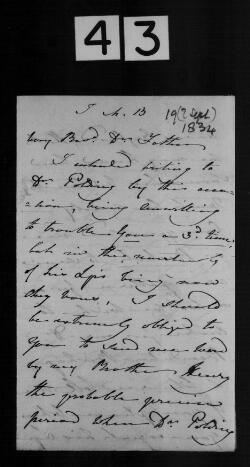 43
J. M. B
19 (? Sept)
1834
Very Revd. Dr Father
I intended writing to
Dr Polding by this occa-
sion, being unwilling
to trouble you a 3d. time,
but in the
of his Lp's being now
I should
be extremely obliged to
you to send me word
by my Brother Henry
the probable precise
period when Dr Polding